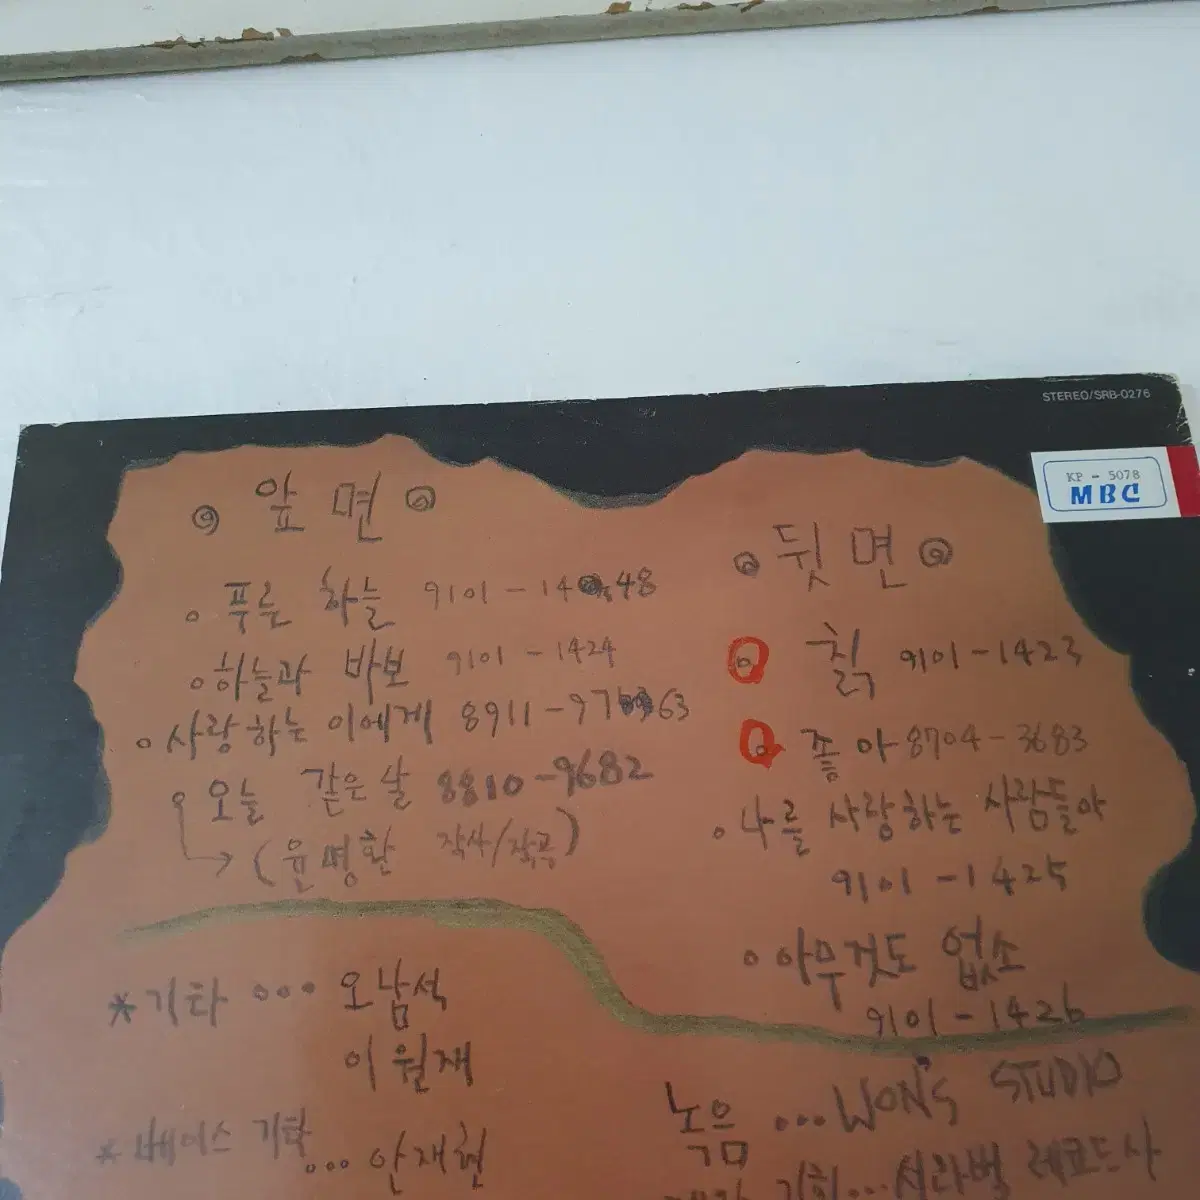 STEREO/SRB-0276
KP - 5078
MBC
앞면
푸른 하늘 9101-14 48
하늘과 바보 9101-1424
사랑하는 이에게 8911-97 63
오늘 같은 날 8810-9682
(윤명환 작사/작곡)
뒷면
칡 9101-1423
좋아 8704-3683
나를 사랑하는 사람들아
9101-1425
아무것도 없소
9101-1426
*기타 ... 오남석
이원재
*베이스 기타 ... 안재현
녹음 ... WON'S STUDIO
기획... 서라벌 레코드사